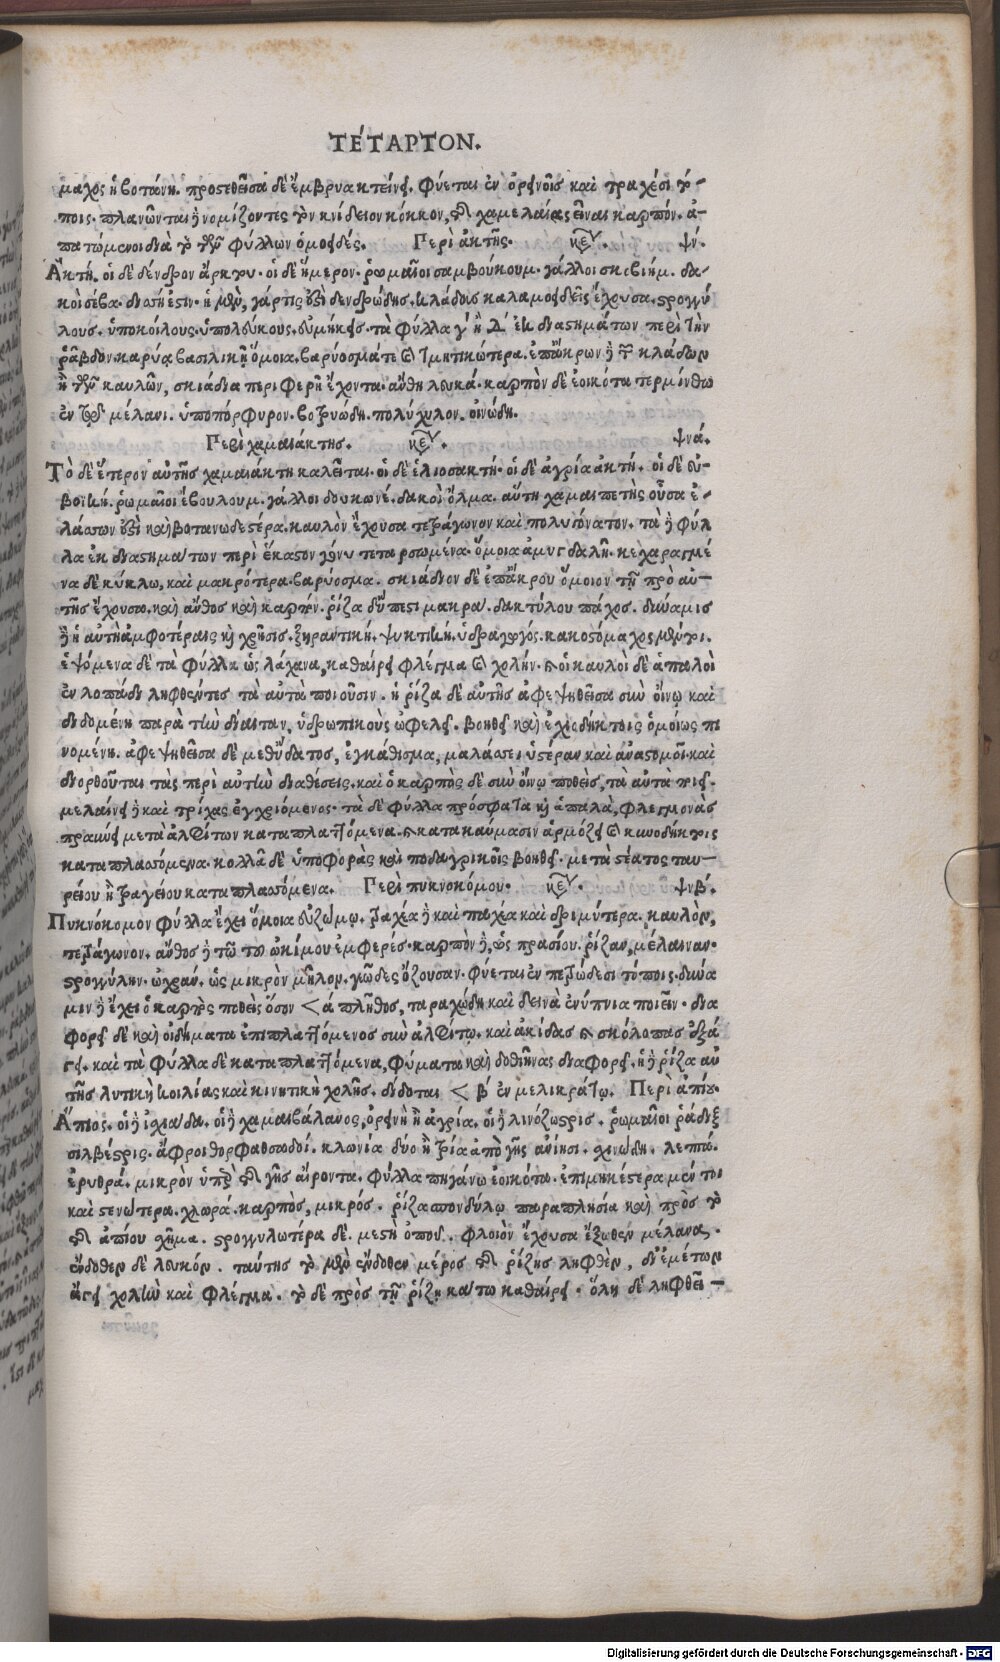 ΤΕ´ΤΑΡΤΟΝ.
μαχος ἡ βοτάνη. προστεθεῖσα δὲ ἔμβρυα κτείνει. φύεται ἐν ὀρεινοῖς καὶ τραχέσι τό-
ποις. πλανῶνται ἢ νομίζοντες τὸν κνίδειον κόκκον, τοῦ χαμελαίας εἶναι καρπόν. ἀ-
πατώμενοι διὰ τὸ τῶν φύλλων ὁμοειδές. Περὶ ἀκτῆς. κεφ. ψν΄.
Ἀκτή. οἱ δὲ δένδρον ἄρκτου. οἱ δὲ ἥμερον. ῥωμαῖοι σαμβούκουμ. γάλλοι σκοβιήμ. δα-
κοὶ σέβα. διοσή ἐστιν. ἡ μὲν, γάρ τις ἐστὶ δενδρώδης. κλάδους καλαμοειδεῖς ἔχουσα. στρογγύ
λους. ὑποκοίλους. ὑπολεύκους. εὐμήκεις. τὰ φύλλα γ΄ ἢ δ΄ ἐκ διαστημάτων περὶ τὴν
ῥάβδον. καρύα βασιλικῇ ὅμοια. βαρυοσμάτε καὶ τμητικώτερα. ἐπ' ἄκρων δὲ τῶν κλάδων
ἢ τῶν καυλῶν, σκιάδια περιφερῆ ἔχοντα. ἄνθη λευκά. καρπὸν δὲ ἐοικότα τερμίνθω
ἐν τῷ μέλανι. ὑποπόρφυρον. βοτρυώδη. πολύχυλον. οἰνώδη.
Περὶ χαμαιάκτης. κεφ. ψνά.
Τὸ δὲ ἕτερον αὐτῆς χαμαιάκτη καλεῖται. οἱ δὲ ἑλιοσακτή. οἱ δὲ ἀγρία ἀκτή. οἱ δὲ εὐ-
βοϊκή. ῥωμαῖοι ἔβουλουμ. γάλλοι δουκωνέ. δακοὶ ὄλμα. αὕτη χαμαιπετὴς οὖσα ἐ-
λάσσων ἐστὶ καὶ βοτανωδεστέρα. καυλὸν ἔχουσα τετράγωνον καὶ πολυγόνατον. τὰ δὲ φύλ
λα ἐκ διαστημάτων περὶ ἕκαστον γόνυ τεταρσωμένα. ὅμοια ἀμυγδαλῇ. κεχαραγμέ
να δὲ κύκλω, καὶ μακρότερα. βαρύοσμα. σκιάδιον δὲ ἐπ' ἄκρου ὅμοιον τῇ πρὸ αὐ-
τῆς ἔχουσα. καὶ ἄνθος καὶ καρπόν. ῥίζα δ' ὕπεστι μακρὰ. δακτύλου πάχος. δύναμις
δὲ ἡ αὐτὴ ἀμφοτέραις καὶ χρῆσις. ξηραντική. ψυκτική. ὑδραγωγός. κακοστόμαχος μέντοι.
ἑψόμενα δὲ τὰ φύλλα ὡς λάχανα, καθαίρει φλέγμα καὶ χολήν. καὶ οἱ καυλοὶ δὲ ἁπαλοὶ
ἐν λοπάδι ληφθέντες τὰ αὐτὰ ποιοῦσιν. ἡ ῥίζα δὲ αὐτῆς ἀφεψηθεῖσα σὺν οἴνῳ καὶ
διδομένη παρὰ τὴν δίαιταν, ὑδρωπικοὺς ὠφελεῖ. βοηθεῖ καὶ ἐχιοδήκτοις ὁμοίως πι
νομένη. ἀφεψηθεῖσα δὲ μεθ' ὕδατος, ἐγκάθισμα, μαλάσσει ὑστέραν καὶ ἀναστομοῖ. καὶ
διορθοῦται τὰς περὶ αὐτὴν διαθέσεις. καὶ ὁ καρπὸς δὲ σὺν οἴνῳ ποθεὶς, τὰ αὐτὰ ποιεῖ.
μελαίνει δὲ καὶ τρίχας ἐγχριόμενος. τὰ δὲ φύλλα πρόσφατα καὶ ἁπαλὰ, φλεγμονὰς
πραΰνει μετὰ ἀλφίτων καταπλαττόμενα. καὶ κατακαύμασιν ἁρμόζει καὶ κυνοδήκτοις
καταπλασσόμενα. κολλᾶ δὲ ὑποφορὰς καὶ ποδαγρικοῖς βοηθεῖ. μετὰ στέατος ταυ-
ρείου ἢ τραγείου καταπλασσόμενα. Περὶ πυκνοκόμου. κεφ. ψνβ΄.
Πυκνόκομον φύλλα ἔχει ὅμοια εὐζώμῳ. τραχέα δὲ καὶ παχέα καὶ δριμύτερα. καυλὸν,
τετράγωνον. ἄνθος δὲ τῷ τοῦ ὠκίμου ἐμφερές. καρπὸν δὲ, ὡς πρασίου. ῥίζαν, μέλαιναν.
στρογγύλην. ὠχρὰν. ὡς μικρὸν μῆλον. γεῶδες ὄζουσαν. φύεται ἐν πετρώδεσι τόποις. δύνα
μιν δὲ ἔχει ὁ καρπὸς ποθεὶς ὅσον < ά πλῆθος, ταραχώδη καὶ δεινὰ ἐνύπνια ποιεῖν. δια
φορεῖ δὲ καὶ οἰδήματα ἐπιπλαττόμενος σὺν ἀλφίτῳ. καὶ ἀκίδας καὶ σκόλοπας ἐξά
γει. καὶ τὰ φύλλα δὲ καταπλαττόμενα, φύματα καὶ δοθιῆνας διαφορεῖ. ἡ δὲ ῥίζα αὐ
τῆς λυτικὴ κοιλίας καὶ κινητικὴ χολῆς. δίδοται < β΄ ἐν μελικράτῳ. Περὶ ἀπίου.
Ἄπιος. οἱ δὲ ἰχιάδα. οἱ δὲ χαμαιβάλανος, ὀρεινὴ ἢ ἀγρία. οἱ δὲ λινόζωστρις. ῥωμαῖοι ῥάδιξ
σιλβέστρις. ἄφροι θορφαθσαδοί. κλωνία δύο ἢ τρία ἀπὸ γῆς ἀνίησι. σχινώδη. λεπτὰ.
ἐρυθρά. μικρὸν ὑπὲρ τῆς γῆς αἴροντα. φύλλα πηγάνω ἐοικότα. ἐπιμηκέστερα μέν τοι
καὶ στενώτερα. χλωρά. καρπὸς, μικρός. ῥίζα σπονδύλῳ παραπλησία καὶ πρὸς τὸ
τοῦ ἀπίου σχῆμα. στρογγυλωτέρα δὲ. μεστὴ ὀποῦ. φλοιὸν ἔχουσα ἔξωθεν μέλανα.
ἔνδοθεν δὲ λευκόν. ταύτης τὸ μὲν ἔνδοθεν μέρος τῆς ῥίζης ληφθὲν, δι' ἐμέτων
ἄγει χολὴν καὶ φλέγμα. τὸ δὲ πρὸς τῇ ῥίζῃ κάτω καθαίρει. ὅλη δὲ ληφθεῖ-
Digitalisierung gefördert durch die Deutsche Forschungsgemeinschaft - DFG